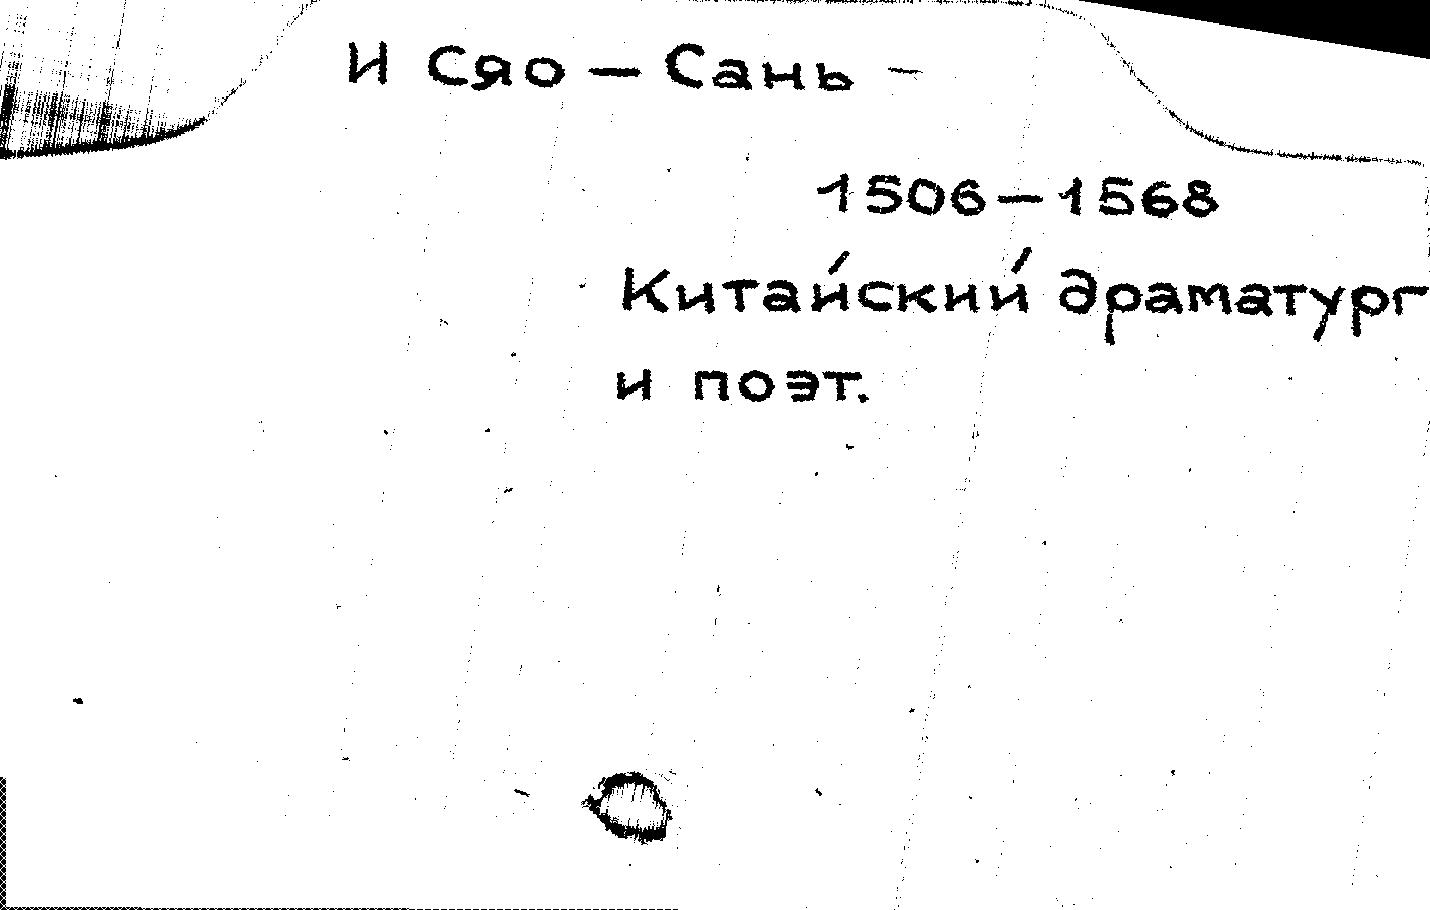 И Сяо — Сань —
1506 — 1568
Китайский драматург
и поэт.